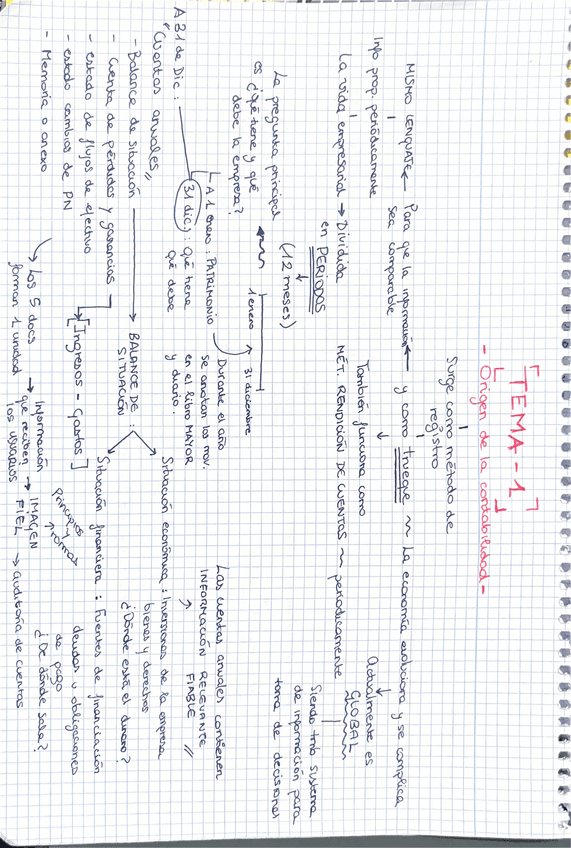 TEMA-1
- Origen de la contabilidad -
Surge como método de
registro
y como trueque ~ La economía evoluciona y se complica
Para que la información
sea comparable
MISMO LENGUAJE
También funciona como
Actualmente es
GLOBAL
Info prop. periódicamente
MÉT. RENDICIÓN DE CUENTAS ~ periodicamente
La vida empresarial → Dividida
en PERIODOS
(12 meses)
Siendo un sistema
de información para
toma de decisiones
1 enero → 31 diciembre
La pregunta principal
es ¿Qué tiene y qué
debe la empresa?
A 1 enero: PATRIMONIO
31 dic): Qué tiene
qué debe
Durante el año
se anotan los mov.
en el libro MAYOR
y diario.
Las cuentas anuales contienen
INFORMACIÓN RELEVANTE
FIABLE //
A 31 de Dic:
"Cuentas anuales"
- Balance de situación
BALANCE DE :
SITUACIÓN
Situación económica: Inversiones de la empresa
bienes y derechos
¿Dónde está el dinero?
Situación financiera: Fuentes de financiación
deudas u obligaciones
de pago
¿De dónde sale?
- Cuenta de pérdidas y ganancias
[Ingresos - Gastos]
- estado de flujos de efectivo
- estado cambios de PN
- Memoria o anexo
Los 5 docs
forman 1 unidad
→ Información
que reciben
los usuarios
→ IMAGEN
FIEL
principios y
normas
→ auditoría de cuentas